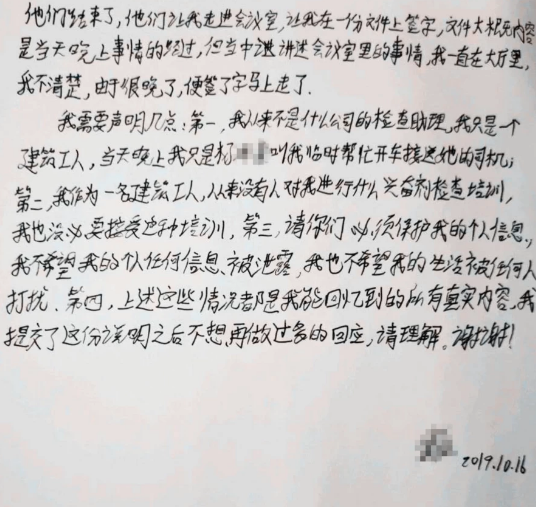 他们结束了，他们让我走进会议室，让我在一份文件上签字，文件大概内容
是当天晚上事情的经过，但当中讲述会议室里的事情，我一直在大厅里，
我不清楚，由于很晚了，便签了字马上走了．
我需要声明几点：第一，我从来不是什么公司的检查助理，我只是一个
建筑工人，当天晚上我只是杨 叫我临时帮忙开车接送她的司机；
第二，我作为一名建筑工人，从来没有人对我进行什么兴奋剂检查培训，
我也没必要接受这种培训，第三，请你们必须保护我的个人信息，
我不希望我的个人任何信息被泄露，我也不希望我的生活被任何人
打扰．第四，上述这些情况都是我能回忆到的所有真实内容，我
提交了这份说明之后不想再做过多的回应，请理解．谢谢！
2019.10.16